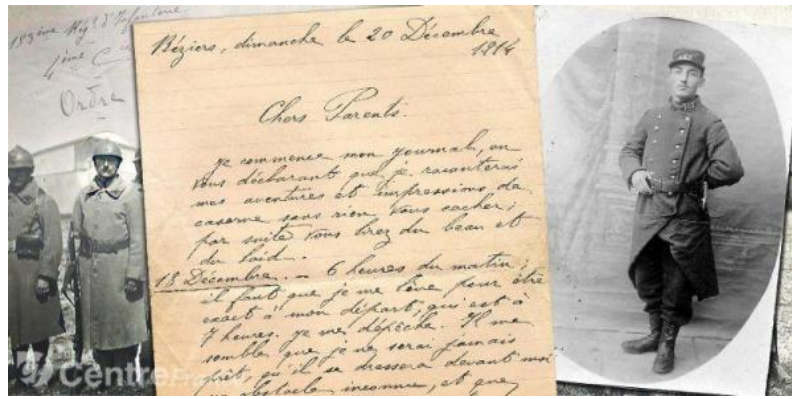 153ème Régt d'Infanterie
4ème C
Ordre
Béziers, dimanche le 20 Décembre
1914
Chers Parents.
Je commence mon journal, en
vous déclarant que je raconterai
mes aventures et impressions de
caserne sans rien vous cacher;
par suite vous lirez du beau et
du laid.
18 Décembre. — 6 heures du matin;
il faut que je me lève pour être
exact à mon départ, qui est à
7 heures. Je me dépêche. Il me
semble que je ne serai jamais
prêt, qu'il se dressera devant moi
un obstacle inconnu, et que
Centre